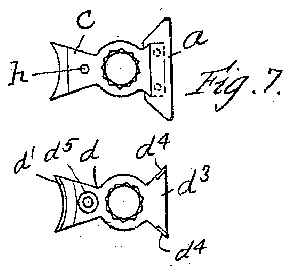 c
h
a
Fig. 7.
d' d⁵ d d⁴
d³
d⁴